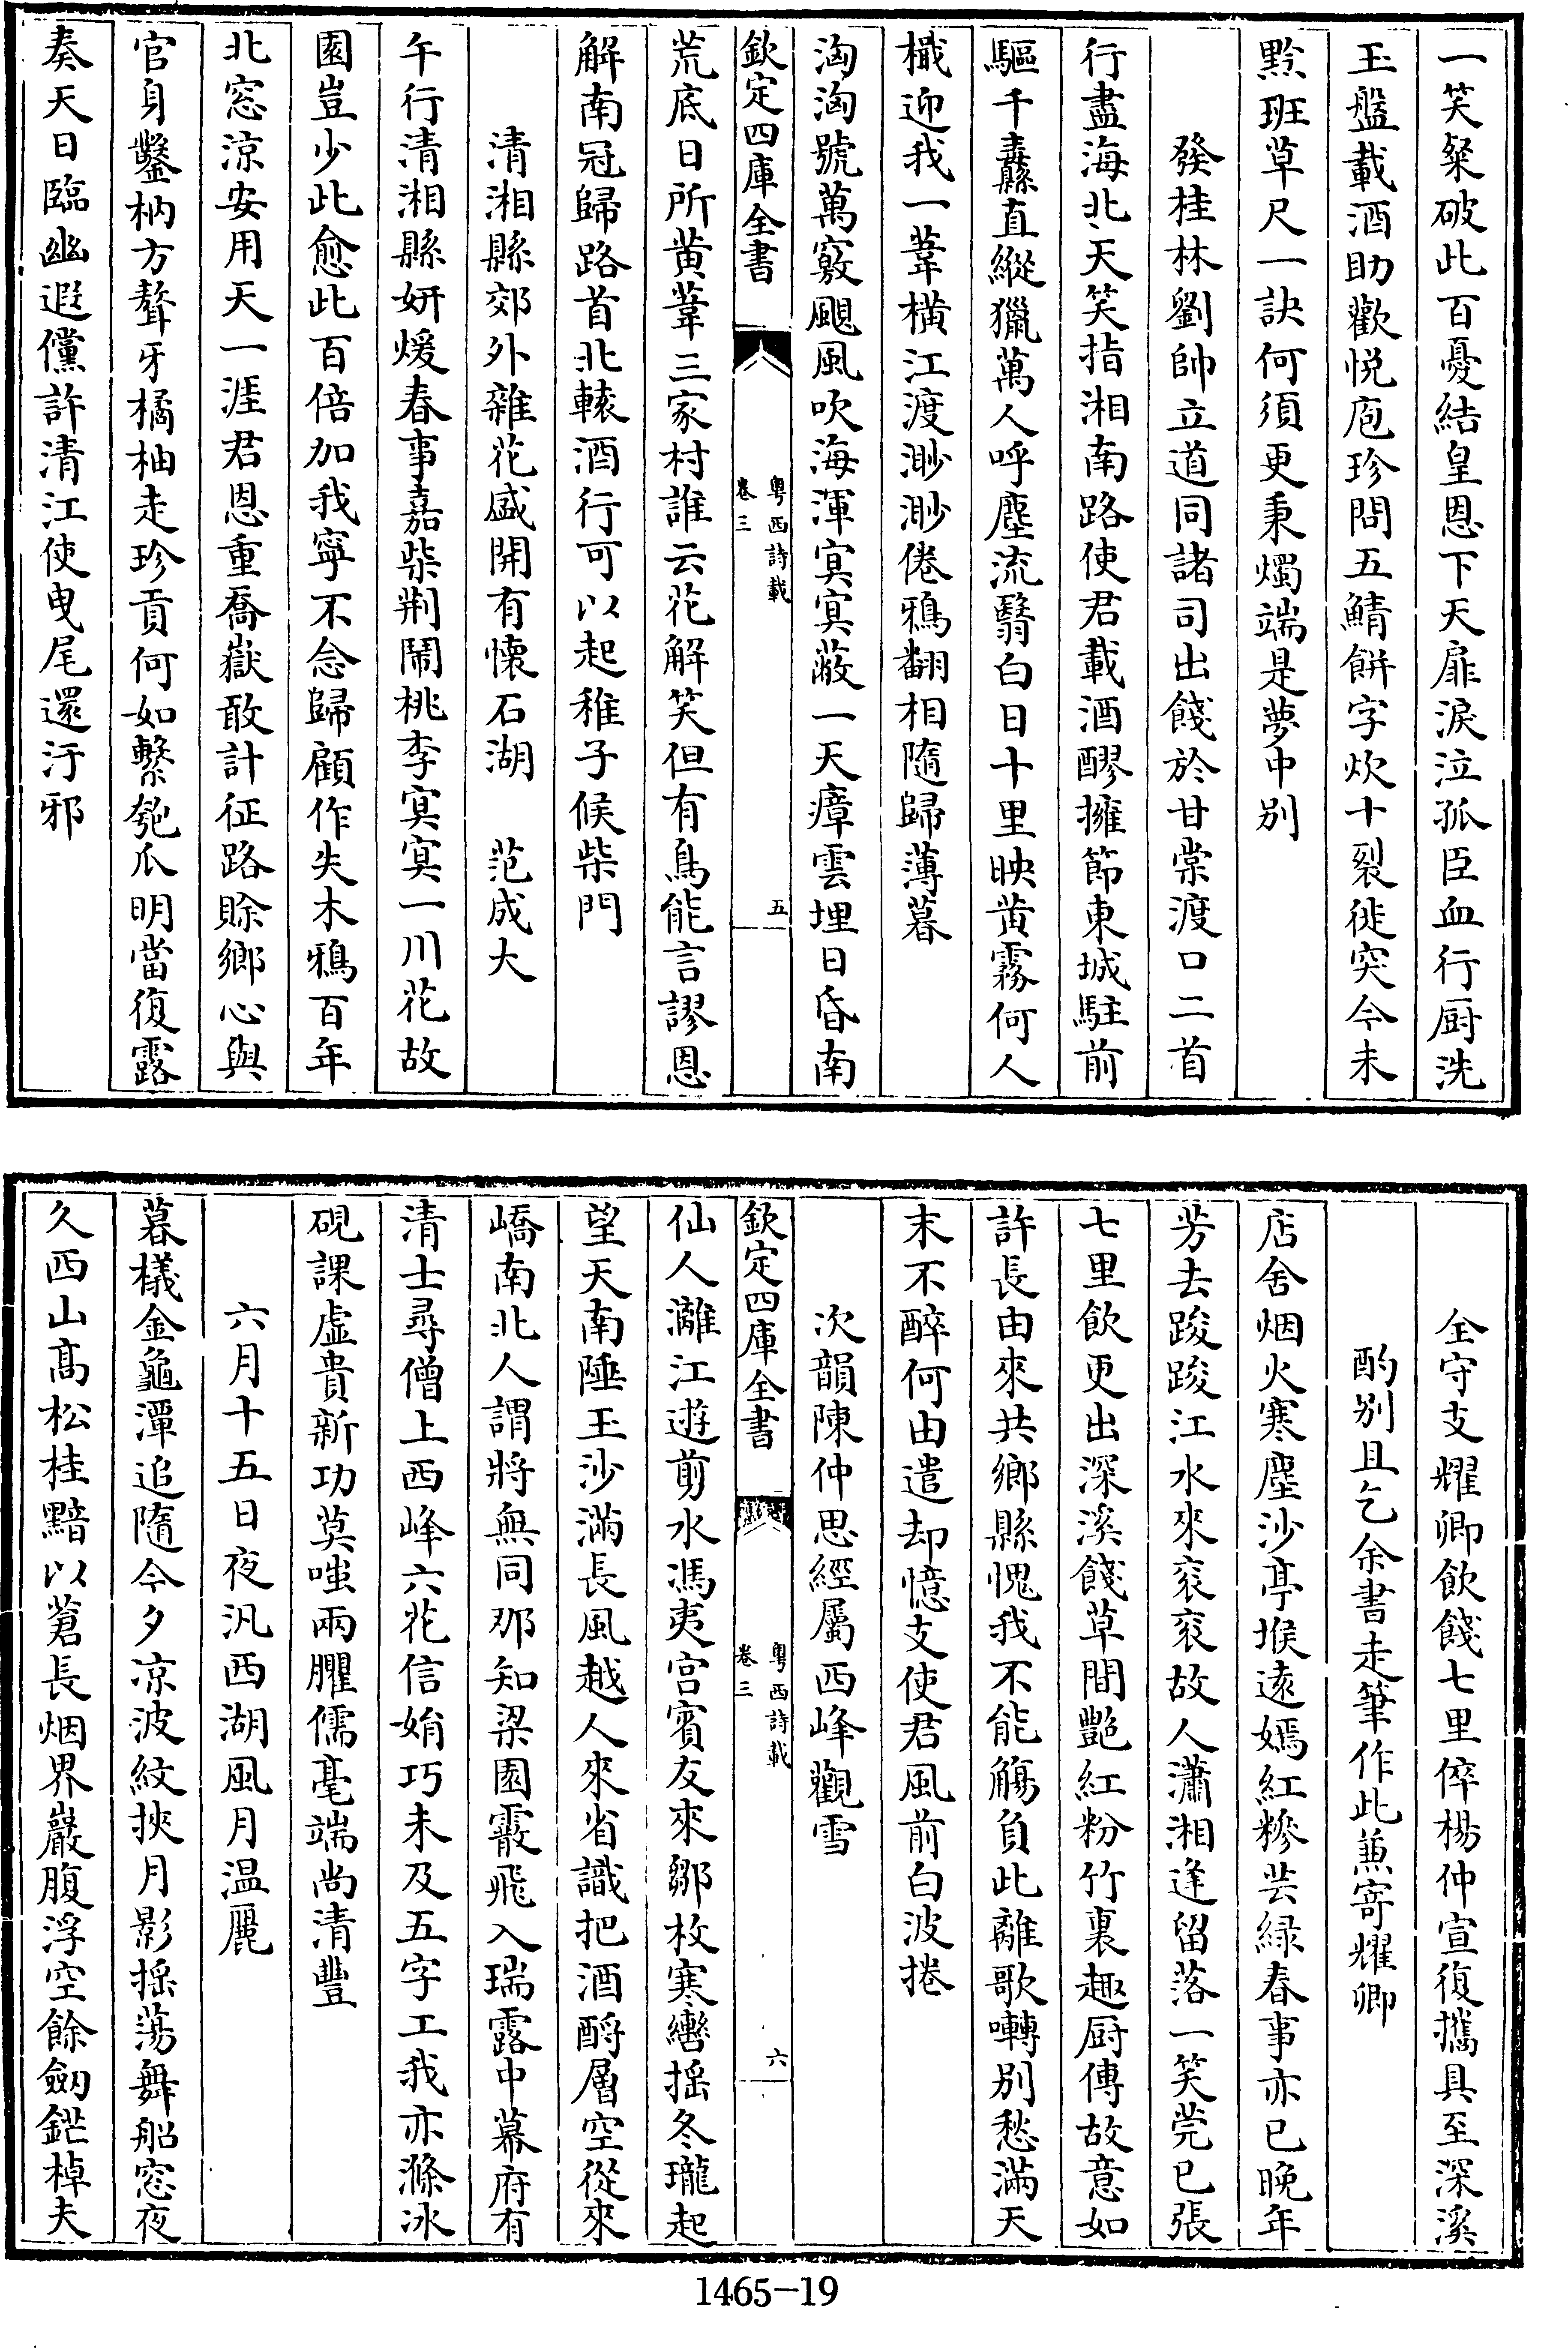 一笑粲破此百憂結皇恩下天扉淚泣孤臣血行厨洗
玉盤載酒助歡悅庖珍問五鯖餅字炊十裂徙突今未
黔班草尺一訣何須更秉燭端是夢中別
發桂林劉帥立道同諸司出餞於甘棠渡口二首
行盡海北天笑指湘南路使君載酒醪擁節東城駐前
驅千纛直縱獵萬人呼塵流翳白日十里映黄霧何人
檥迎我一葦橫江渡渺渺倦鴉翻相隨歸薄暮
洶洶號萬竅颶風吹海渾冥冥蔽一天瘴雲埋日昏南
欽定四庫全書
粤西詩載
卷三
五
荒底日所黄葦三家村誰云花解笑但有鳥能言謬恩
解南冠歸路首北轅酒行可以起稚子候柴門
清湘縣郊外雜花盛開有懷石湖 范成大
午行清湘縣妍煖春事嘉柴荆鬧桃李冥冥一川花故
園豈少此愈此百倍加我寧不念歸顧作失木鴉百年
北窓涼安用天一涯君恩重喬嶽敢計征路賖鄉心與
官身鑿枘方聱牙橘柚走珍貢何如繫匏瓜明當復露
奏天日臨幽遐儻許清江使曳尾還汙邪
全守支耀卿飲餞七里倅楊仲宣復攜具至深溪
酌别且乞余書走筆作此兼寄耀卿
店舍烟火寒塵沙亭堠逺嫣紅糝芸緑春事亦已晚年
芳去踆踆江水來衮衮故人瀟湘逢留落一笑莞已張
七里飲更出深溪餞草間艷紅粉竹裏趣厨傳故意如
許長由來共鄉縣愧我不能觴負此離歌囀别愁滿天
末不醉何由遣却憶支使君風前白波捲
次韻陳仲思經屬西峰觀雪
欽定四庫全書
粤西詩載
卷三
六
仙人灕江遊剪水馮夷宫賓友來鄒枚寒轡摇冬瓏起
望天南陲玉沙滿長風越人來省識把酒酹層空從來
嶠南北人謂將無同那知梁園霰飛入瑞露中幕府有
清士尋僧上西峰六花信姷巧未及五字工我亦滌冰
硯課虚貴新功莫嗤兩臞儒毫端尚清豐
六月十五日夜汎西湖風月温麗
暮檥金龜潭追隨今夕凉波紋挾月影摇蕩舞船窓夜
久西山高松桂黯以蒼長烟界巖腹浮空餘劔鋩棹夫
1465-19